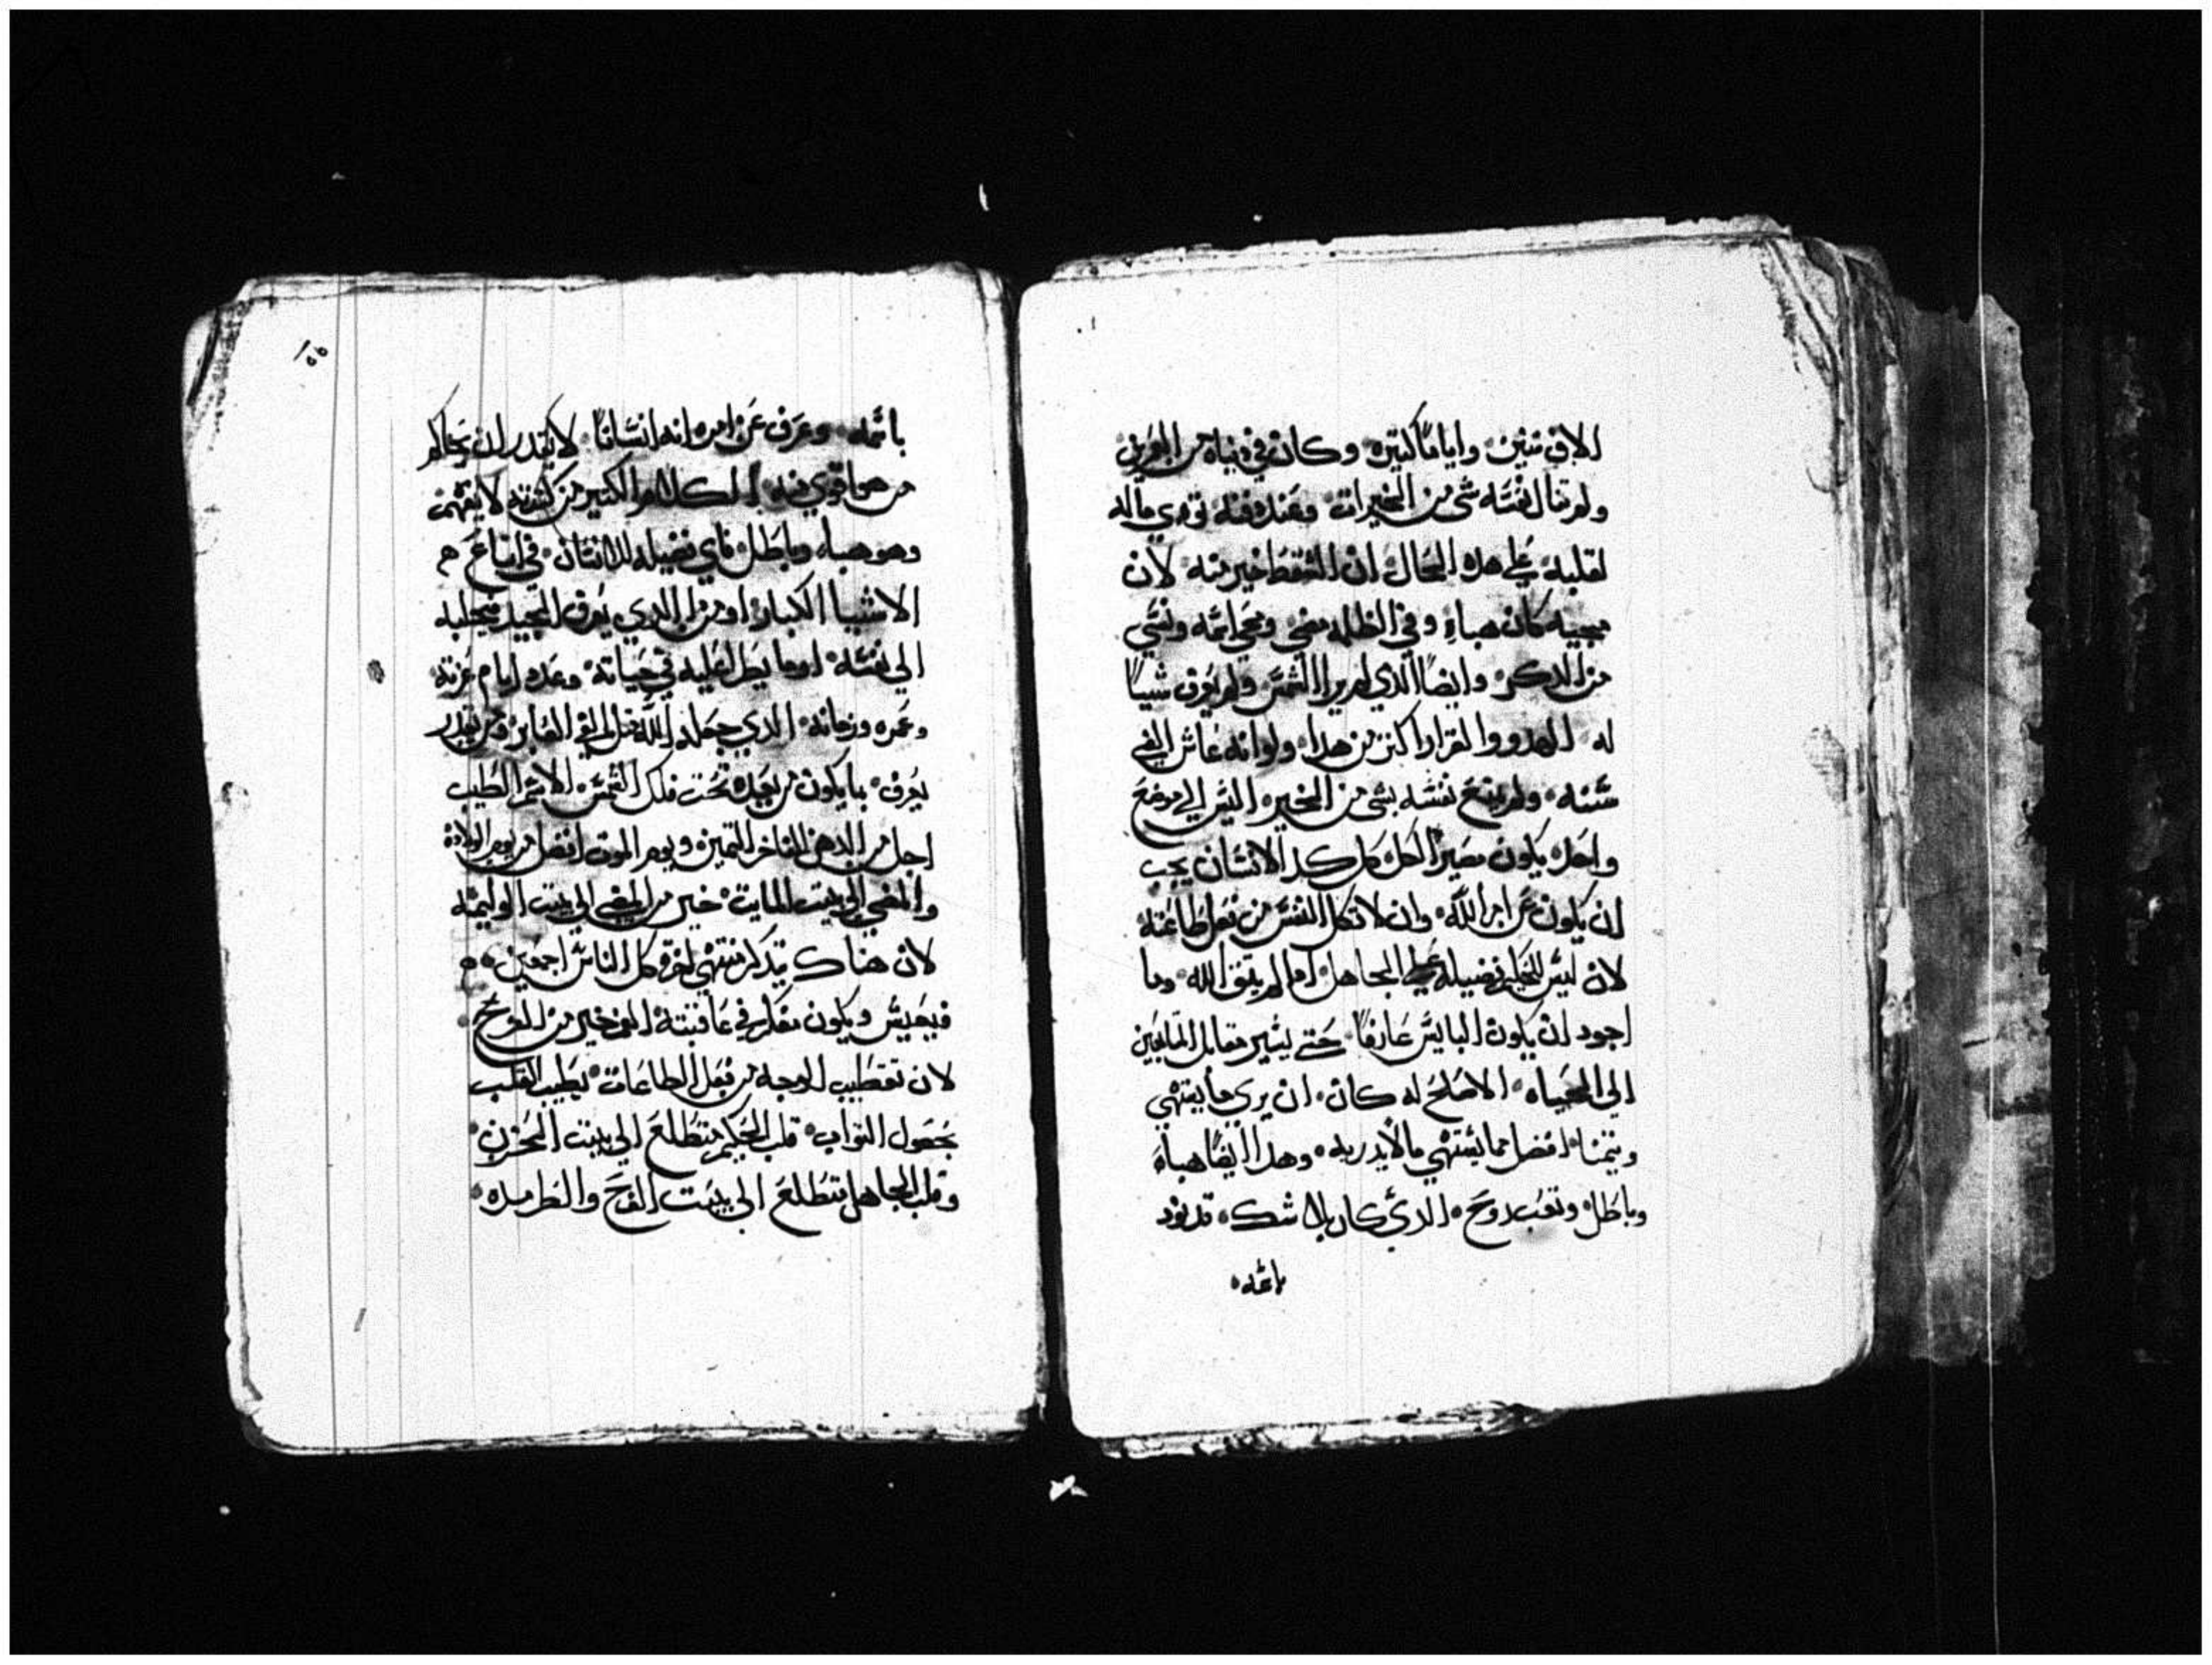 الاف سنين واياما كتيره وكان في دنياه من
ولم تنال نفسه شي من الخيرات وعند دفنه
لقلبه علي هده الحال ان السقط خير منه لان
مجيه كان هباء وفي الظلمه مضي ومحي اسمه ونسي
من الدكر وايضا الدي لم يرا الشمس ولم يعرف شييا
له الهدو والقرار اكتر من هدا ولو انه عاش الفي
سنه ولم ينح نفسه بشي من الخيره اليس الي موضع
واحد يكون مصير الكل كل كد الانسان يجب
ان يكون عن امر الله وان لا تكل النفس من فعل طاعته
لان ليس للحكيم فضيله علي الجاهل ادا لم يتق الله وما
اجود ان يكون البايس عارفا حتي يسير مقابل
الي الحياه الاصلح له كان ان يري ما يشتهي
ويتمنا افضل مما يشتهي ما لا يدريه وهدا ايضا هباء
وباطل وتعب روح الدي كان بلا شك قد نودي
باسمه
١٥٥
باسمه وعرف عن امره انه انسانا لا يقدر ان يحاكم
من هو اقوي منه الكلام الكتير من كترته لا يفهم
وهو هباء وباطل فاي فضيله للانسان في اتباع
الاشيا الكبار او من الدي يعرف الجيد فيجلبه
الي نفسه او ما يطرا عليه في حياته وعدد ايام غربته
وعمره وزمانه الدي جعله الله مثل الفي العابر من يقدر
يعرف ما يكون من بعده تحت فلك الشمس الاسم الطيب
اجل من الدهن الفاخر التمين ويوم الموت افضل من يوم الولاده
والمضي الي بيت المايت خير من المضي الي بيت الوليمه
لان هناك يتدكر منتهي اخرة كل الناس اجمعين
فيعيش ويكون مفكر في عاقبته الغم خير من الفرح
لان تقطيب الوجه من فعل الطاعات يطيب القلب
بحصول التواب قلب الحكيم متطلع الي بيت الحزن
وقلب الجاهل متطلع الي بيت الفرح والطرب